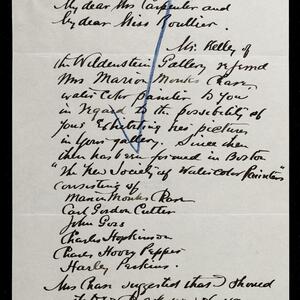 My dear Mrs Carpenter and
My dear Miss Roullier.
Mr. Kelley of
the Wildenstein Gallery referred
Mrs Marion Monks Chase,
water color painter to you
in regard to the possibility of
your exhibiting her pictures
in your gallery. Since then
there has been formed in Boston
"The New Society of Water Color Painters"
consisting of
Marion Monks Chase
Carl Gordon Cutler
John Goss
Charles Hopkinson
Charles Hovey Pepper
Harley Perkins.
Mrs Chase suggested that I should